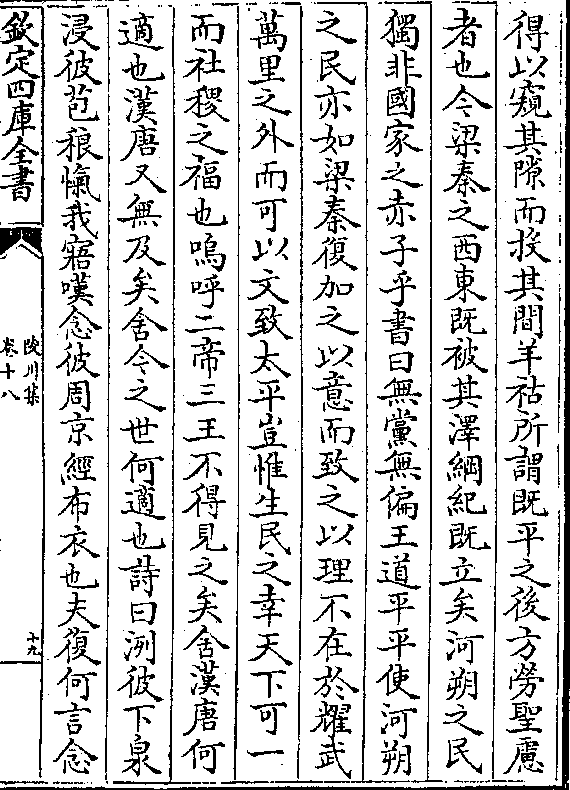 得以窺其隙而投其間羊祜所謂既平之後方勞聖慮
者也今梁秦之西東既被其澤綱紀既立矣河朔之民
獨非國家之赤子乎書曰無黨無偏王道平平使河朔
之民亦如梁秦復加之以意而致之以理不在於耀武
萬里之外而可以文致太平豈惟生民之幸天下可一
而社稷之福也嗚呼二帝三王不得見之矣舍漢唐何
適也漢唐又無及矣舍今之世何適也詩曰洌彼下泉
浸彼苞稂愾我寤嘆念彼周京經布衣也夫復何言念
欽定四庫全書
陵川集
卷十八
十九